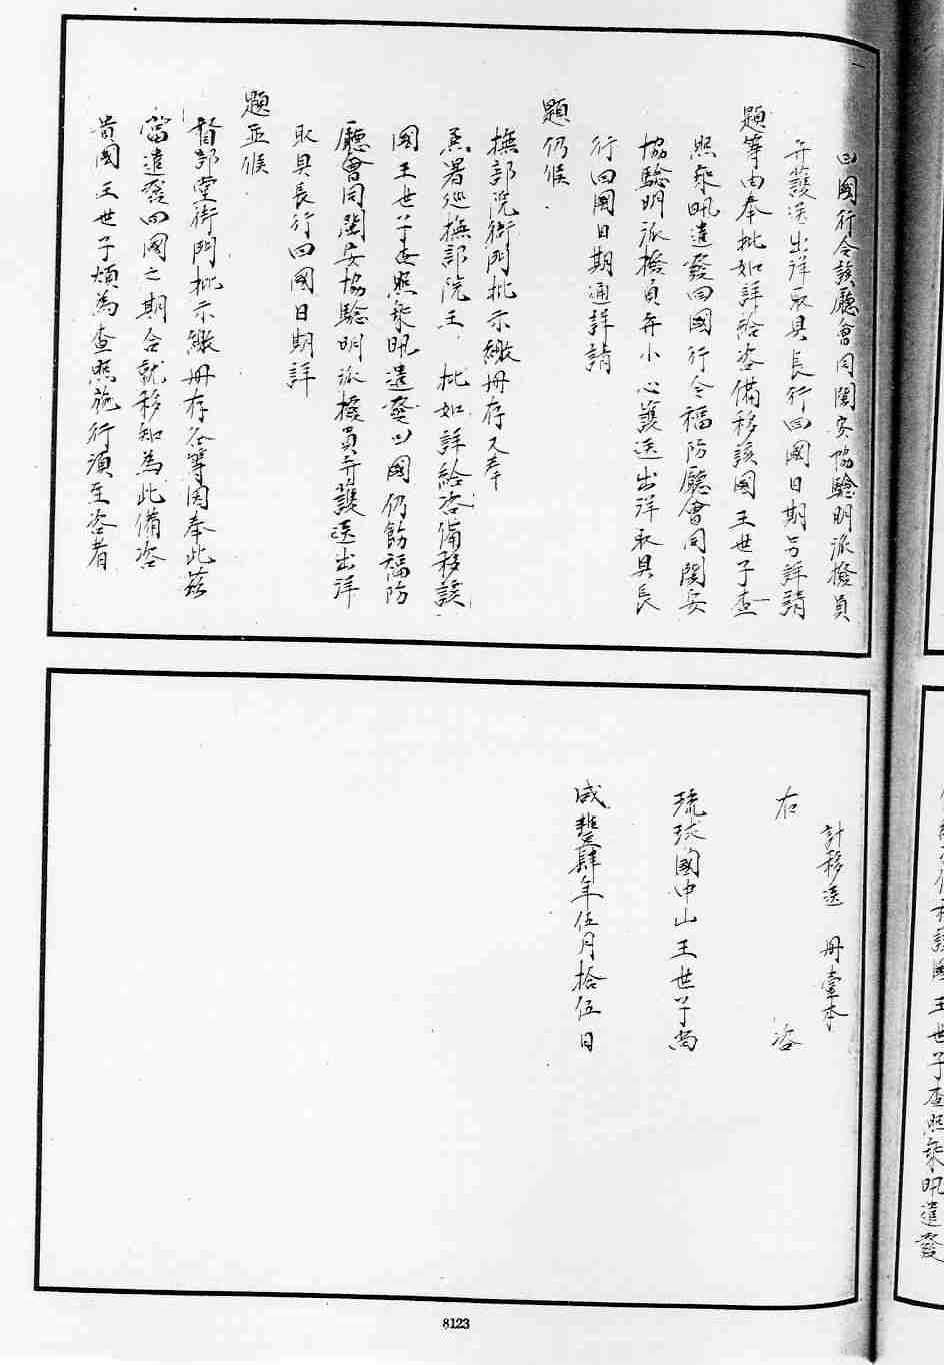 回國行令該廳會同閩安協驗明派撥員
弁護送出洋取具長行回國日期另詳請
題等由奉批如詳給咨備移該國王世子查
照乘汛遣發回國行令福防廳會同閩安
協驗明派撥員弁小心護送出洋取具長
行回國日期通詳請
題仍候
撫部院衙門批示繳冊存又奉
署巡撫部院王 批如詳給咨備移該
國王世子查照乘汛遣發回國仍飭福防
廳會同閩安協驗明派撥員弁護送出洋
取具長行回國日期詳
題並候
督部堂衙門批示繳冊存各等因奉此茲
當遣發回國之期合就移知為此備咨
貴國王世子煩為查照施行須至咨者
計移送 冊壹本
右 咨
琉球國中山王世子尚
咸豐肆年伍月拾伍日
8123
備移該國王世子查照乘汛遣發